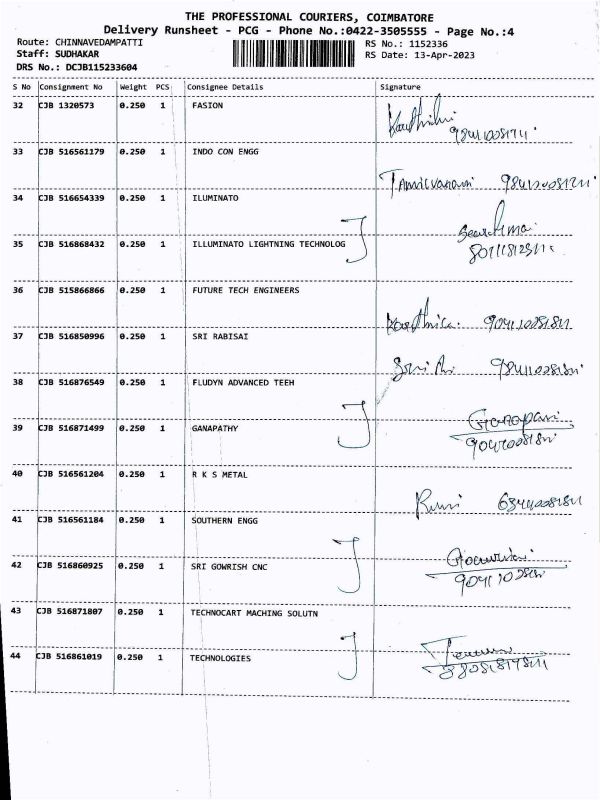 THE PROFESSIONAL COURIERS, COIMBATORE
Delivery Runsheet - PCG - Phone No.:0422-3505555 - Page No.:4
Route: CHINNAVEDAMPATTI RS No.: 1152336
Staff: SUDHAKAR RS Date: 13-Apr-2023
DRS No.: DCJB115233604
S No Consignment No Weight PCS Consignee Details Signature
32 CJB 1320573 0.250 1 FASION
33 CJB 516561179 0.250 1 INDO CON ENGG
34 CJB 516654339 0.250 1 ILUMINATO
35 CJB 516868432 0.250 1 ILLUMINATO LIGHTNING TECHNOLOG
36 CJB 515866866 0.250 1 FUTURE TECH ENGINEERS
37 CJB 516850996 0.250 1 SRI RABISAI
38 CJB 516876549 0.250 1 FLUDYN ADVANCED TEEH
39 CJB 516871499 0.250 1 GANAPATHY
40 CJB 516561204 0.250 1 R K S METAL
41 CJB 516561184 0.250 1 SOUTHERN ENGG
42 CJB 516860925 0.250 1 SRI GOWRISH CNC
43 CJB 516871807 0.250 1 TECHNOCART MACHING SOLUTN
44 CJB 516861019 0.250 1 TECHNOLOGIES